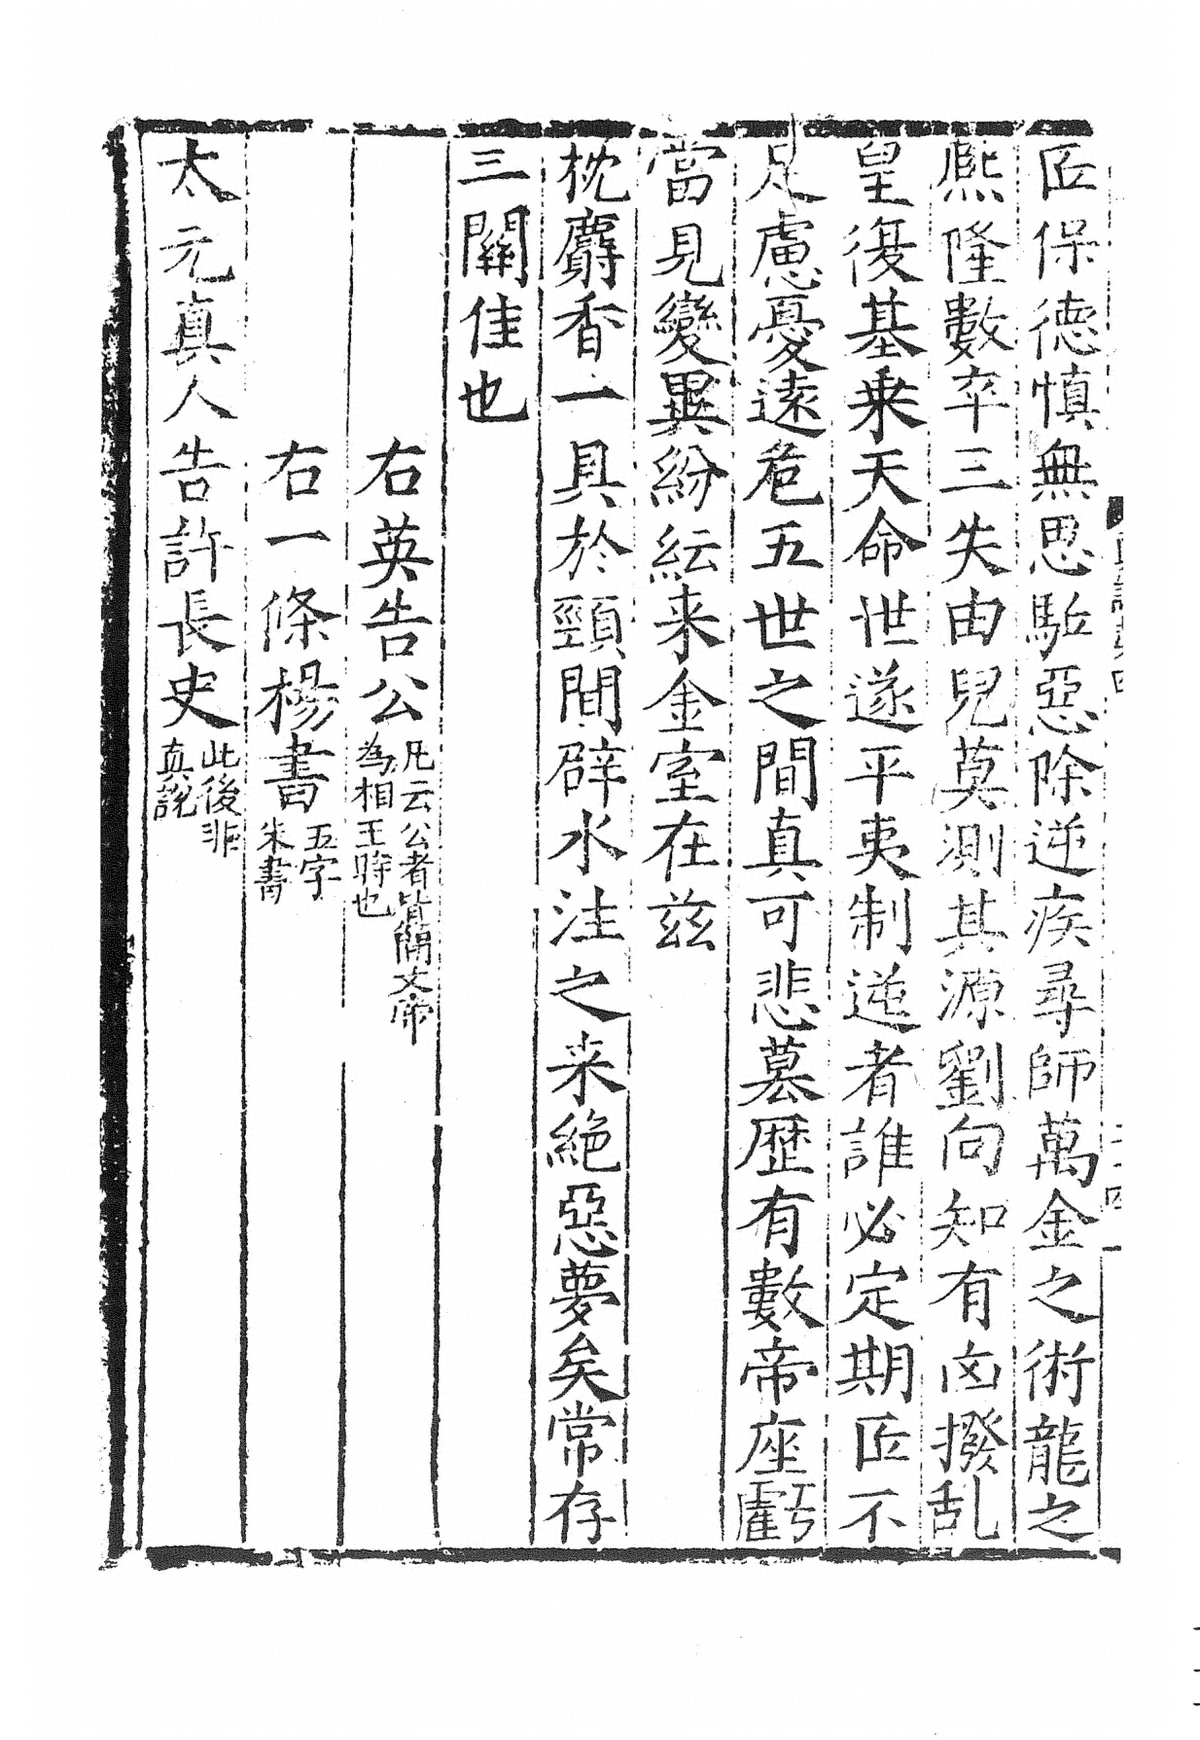 匠保德慎無思駈惡除逆疾尋師萬金之術龍之
熈隆數卒三失由兒莫測其源劉向知有凶撥乱
皇復基乗天命世遂平夷制逆者誰必定期匠不
足慮憂遠危五世之間真可悲墓歴有數帝座虧
當見變異紛紜来金室在兹
枕麝香一具於頸間辟水注之来絶惡夢矣常存
三關佳也
右英告公
凡云公者皆簡文帝
為相王時也
右一條楊書
五字
朱書
太元真人告許長史
此後非
真說